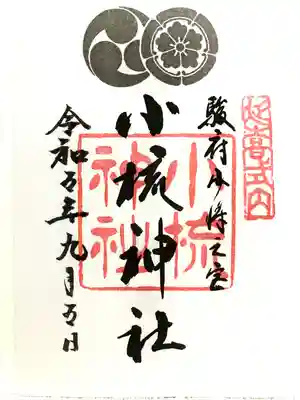 延喜式内
駿府少将之宮
小梳神社
小梳神社
令和五年九月五日